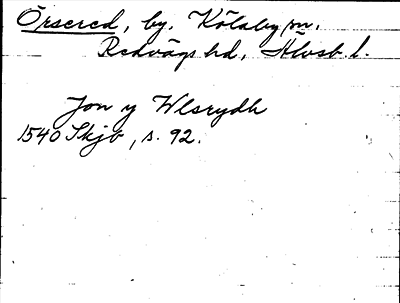 Örsered, by. Kölaby sn.
Redvägs hd, Älvsb. l.
Jon y Wlsrydh
1540 Skjb, s. 92.